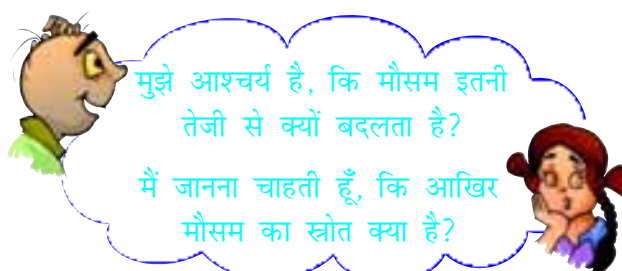 मुझे आश्चर्य है, कि मौसम इतनी
तेजी से क्यों बदलता है?
मैं जानना चाहती हूँ, कि आखिर
मौसम का स्रोत क्या है?